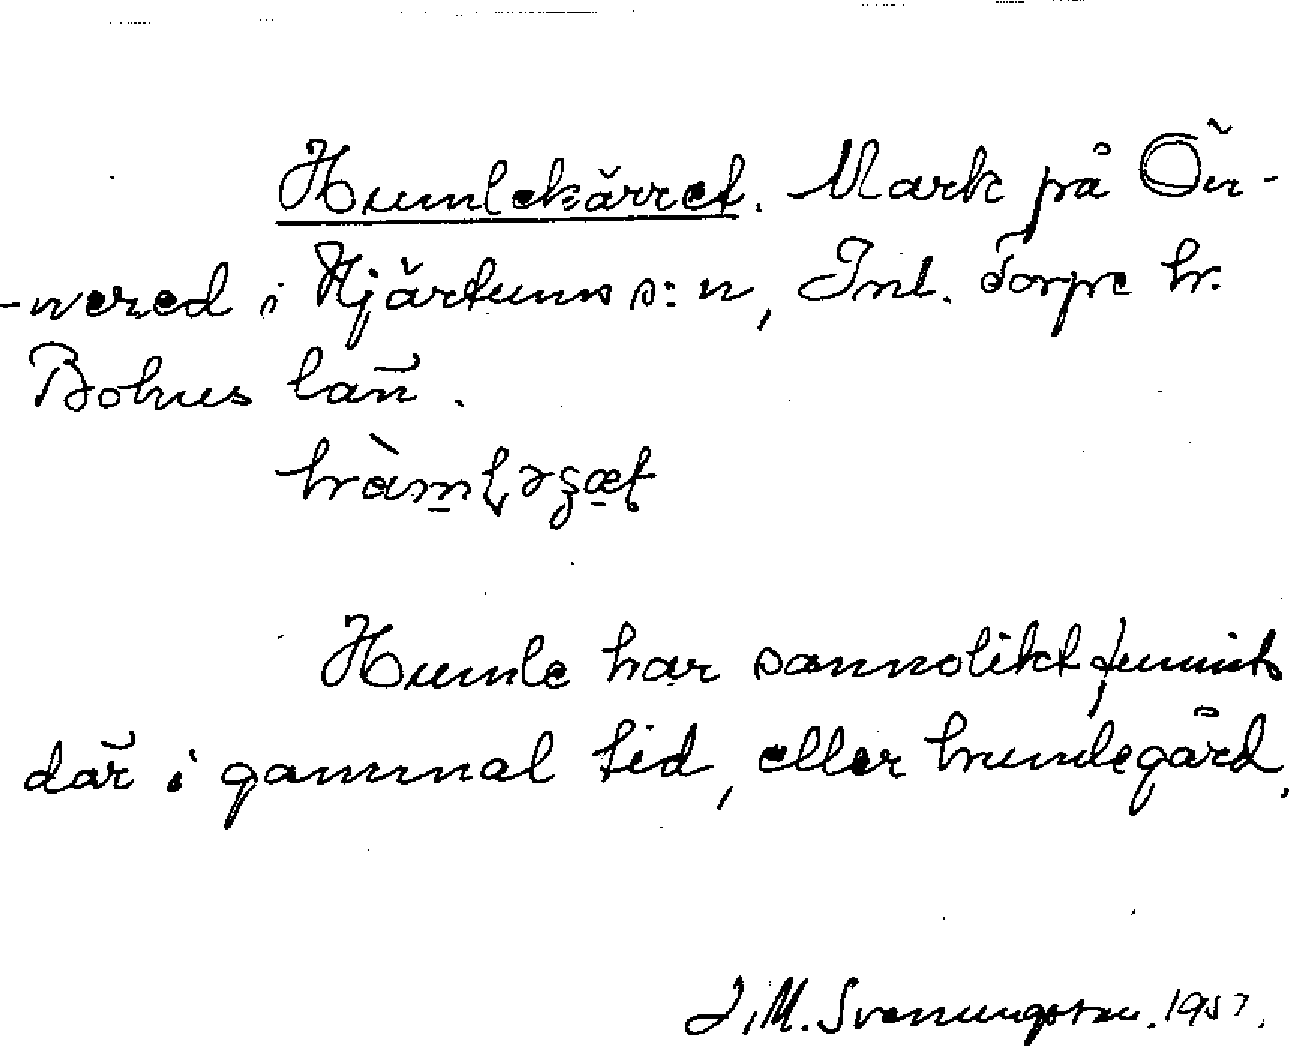 Humlekärret. Mark på Ön-
-nered i Hjärtums s:n, Inl. Torpe hr.
Bohus län.
Humle har sannolikt funnits
där i gammal tid, eller humlegård.
J.M. Svenungsson. 1957.